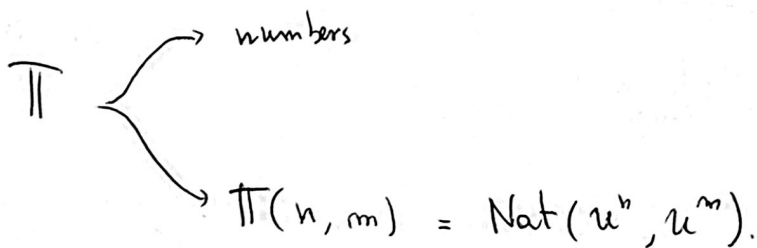 numbers
𝕋
𝕋(n, m) = Nat(u^n, u^m).